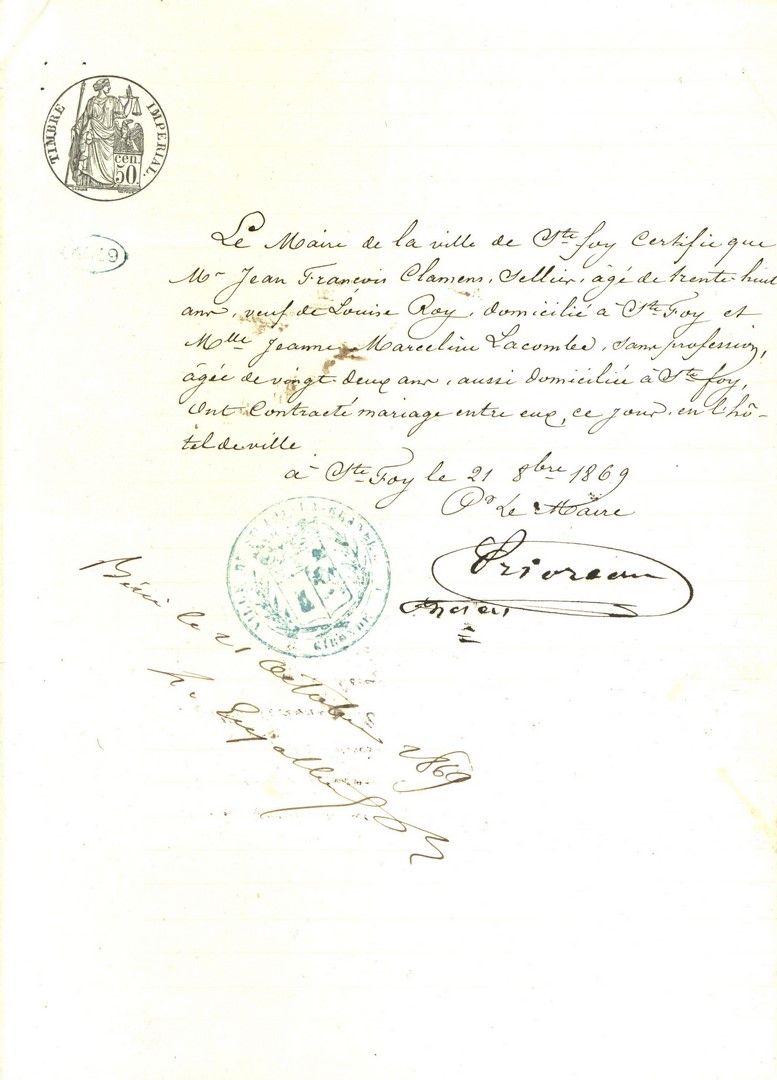 TIMBRE IMPERIAL.
cen.
50.
Le Maire de la ville de Ste foy certifie que
Mr Jean François Clamens, Sellier, âgé de trente-huit
ans, veuf de Louise Roy, domicilié à Ste Foy et
Mlle Jeanne Marceline Lacombe, sans profession,
âgée de vingt deux ans, aussi domiciliée à Ste foy,
ont Contracté mariage entre eux, ce jour, en l'hô-
tel de ville
à Ste Foy le 21 8bre 1869
Le Maire
GIRONDE
Béni le 21 Octobre 1869